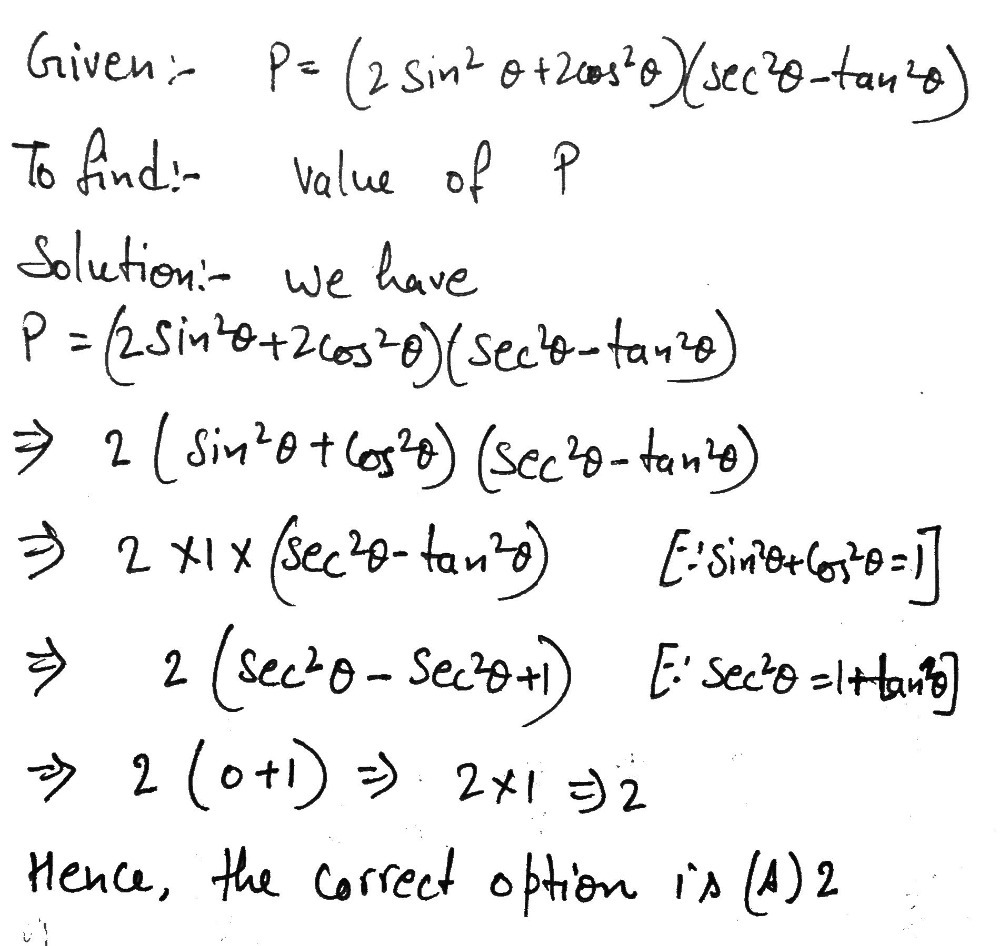 Given:- P = (2 sin² θ + 2cos²θ)(sec²θ - tan²θ)
To find:- Value of P
Solution:- we have
P = (2sin²θ + 2cos²θ)(sec²θ - tan²θ)
⇒ 2 (sin²θ + cos²θ) (sec²θ - tan²θ)
⇒ 2 × 1 × (sec²θ - tan²θ) [∵ sin²θ + cos²θ = 1]
⇒ 2 (sec²θ - sec²θ + 1) [∵ sec²θ = 1 + tan²θ]
⇒ 2 (0 + 1) ⇒ 2 × 1 ⇒ 2
Hence, the correct option is (A) 2